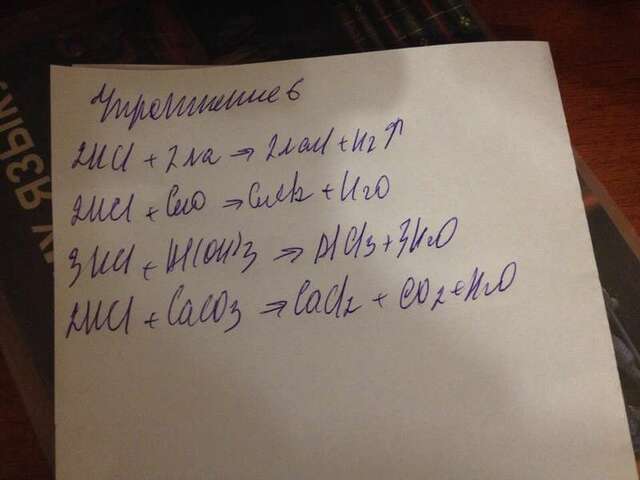 Упражнение 6
2HCl + 2Na ⇒ 2NaCl + H2↑
2HCl + CuO ⇒ CuCl2 + H2O
3HCl + Al(OH)3 ⇒ AlCl3 + 3H2O
2HCl + CaCO3 ⇒ CaCl2 + CO2 + H2O
У ЯЗЫКУ